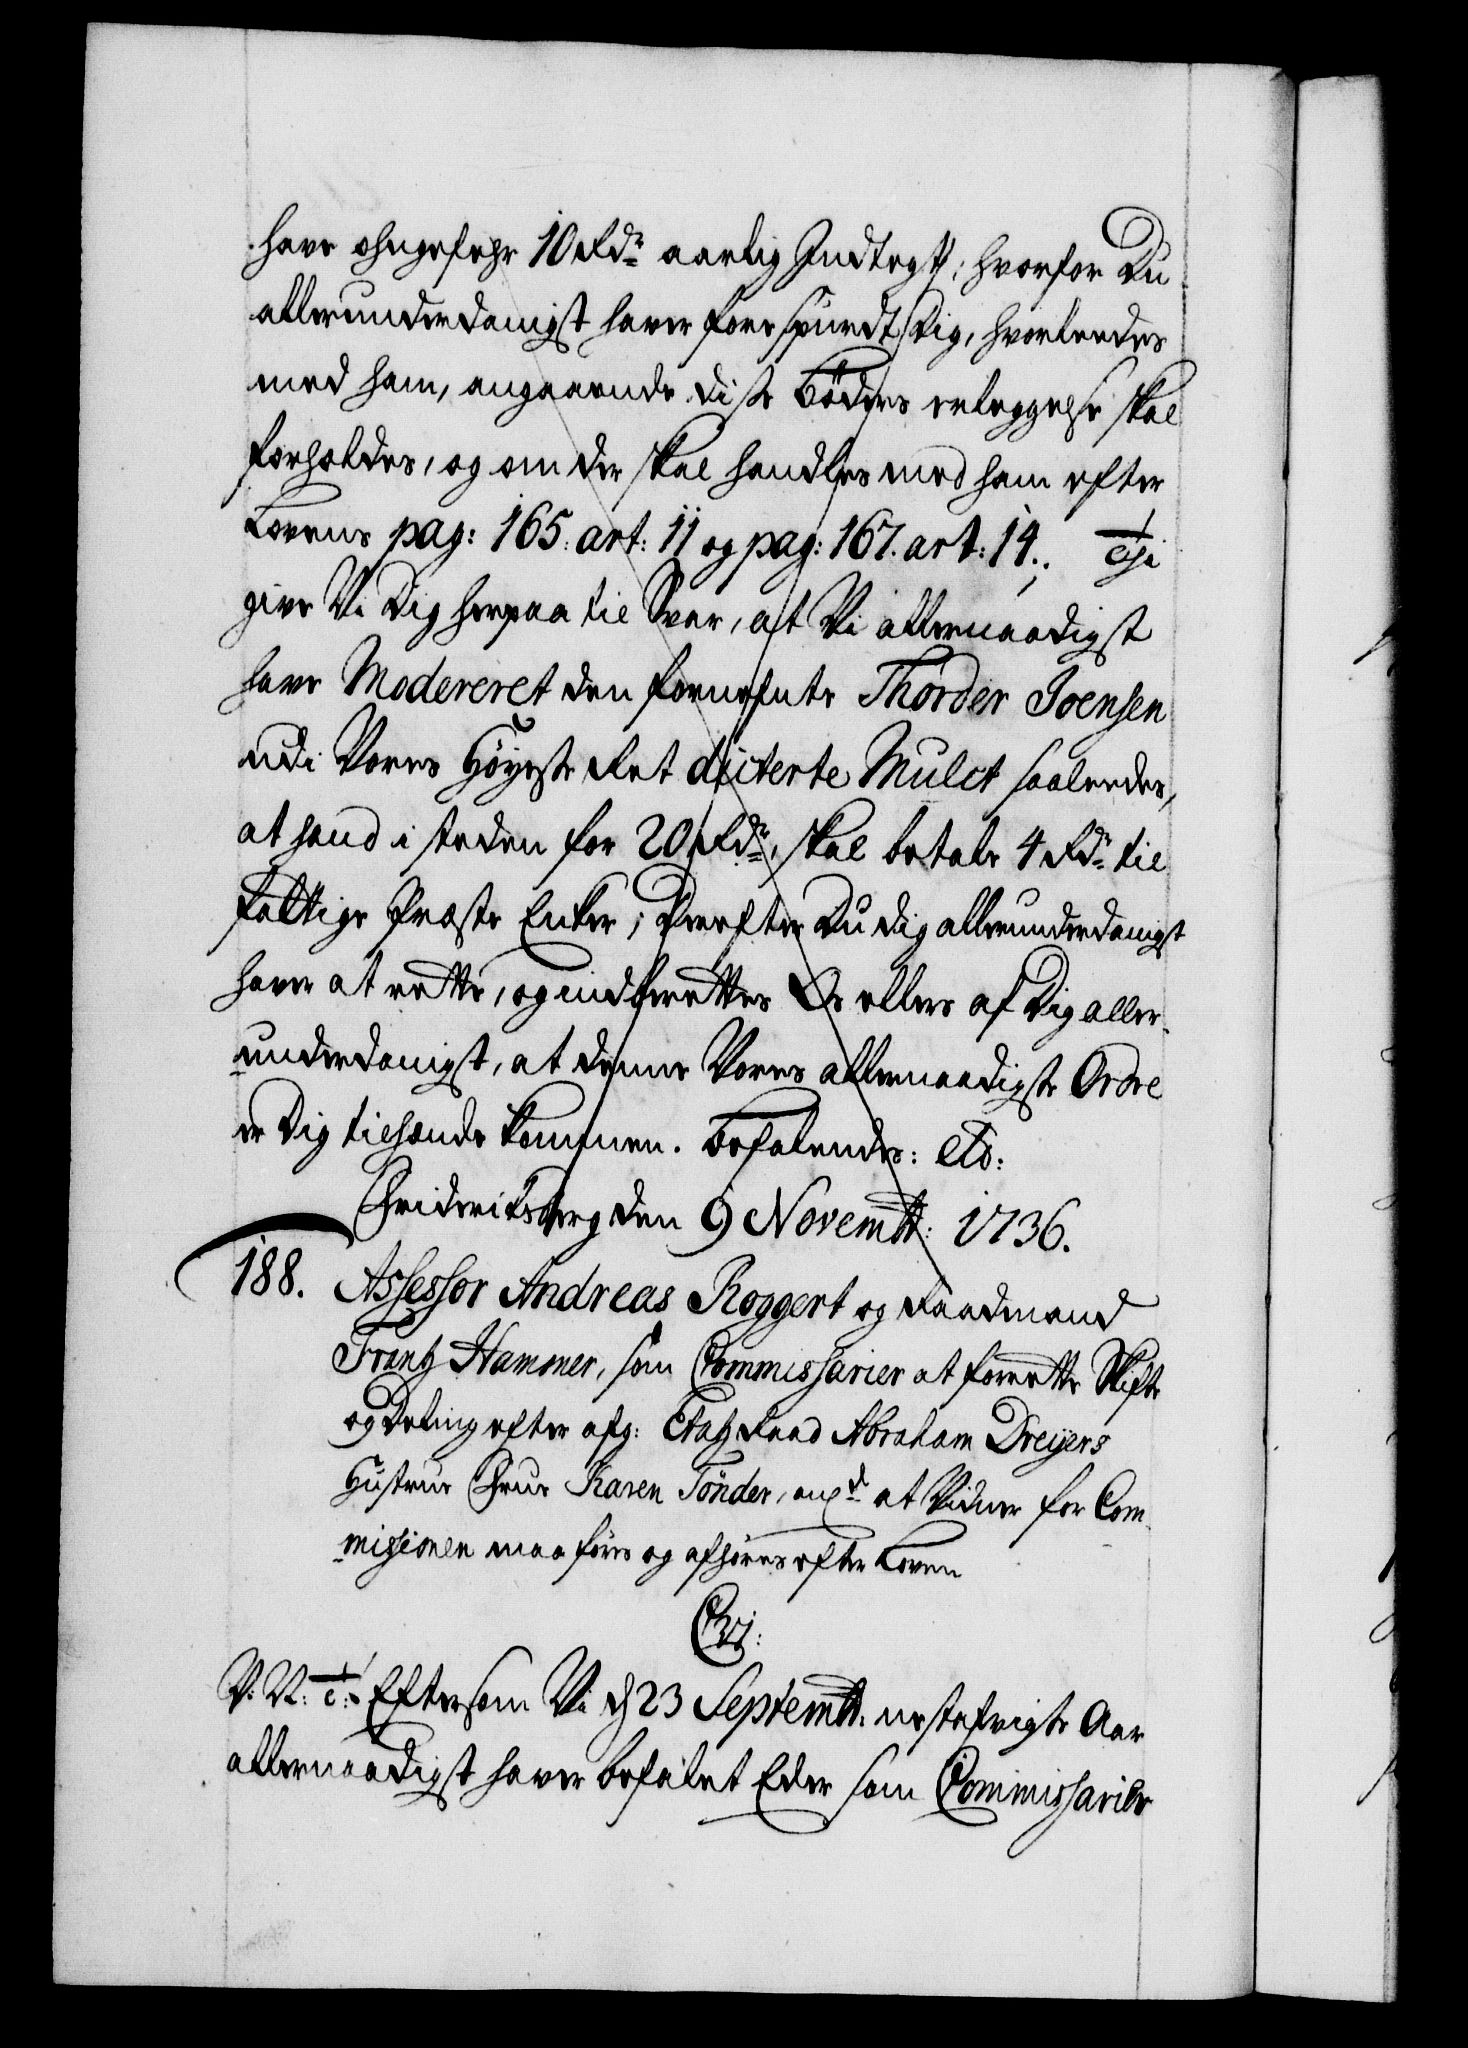 have ohngefehr 10 Rdr aarlig Indtegt; hvorfor Du
allerunderdanigst haver forespurdt Dig, hvorleedes
med ham, angaaende disse Böders erleggelse skal
forholdes, og om der skal handles med ham efter
Lovens pag: 165. art: 11 og pag: 167. art: 14.,
give Vi Dig herpaa til Svar, at Vi allernaadigst
have Modereret den fornefnte Thorder Joensen
udi Vores Höyeste Ret dicterte Mulct saaleedes,
at hand i steden for 20 Rdr, skal betale 4 Rdr til
fattige Præste Enker; Derefter Du dig allerunderdanigst
haver at rette, og indberettes Os ellers af Dig aller-
underdanigst, at denne Vores allernaadigste Ordre
er Dig tilhænde kommen. Befalendes: etc:
Friderichsberg den 9 Novembr: 1736.
188. Assessor Andreas Roggert og Raadmand
Frantz Hammer, som Commissarier at forrette Skifte
og Deling efter afg: Etatz Raad Abraham Dreyers
Hustrue Frue Karen Tönder, angd at Vidner for Com-
missionen maa föres og afhöres efter Loven
C6.
V. V. c: Eftersom Vi d 23 Septembr: nestafvigte Aar
allernaadigst haver befalet Eder som Commissarier